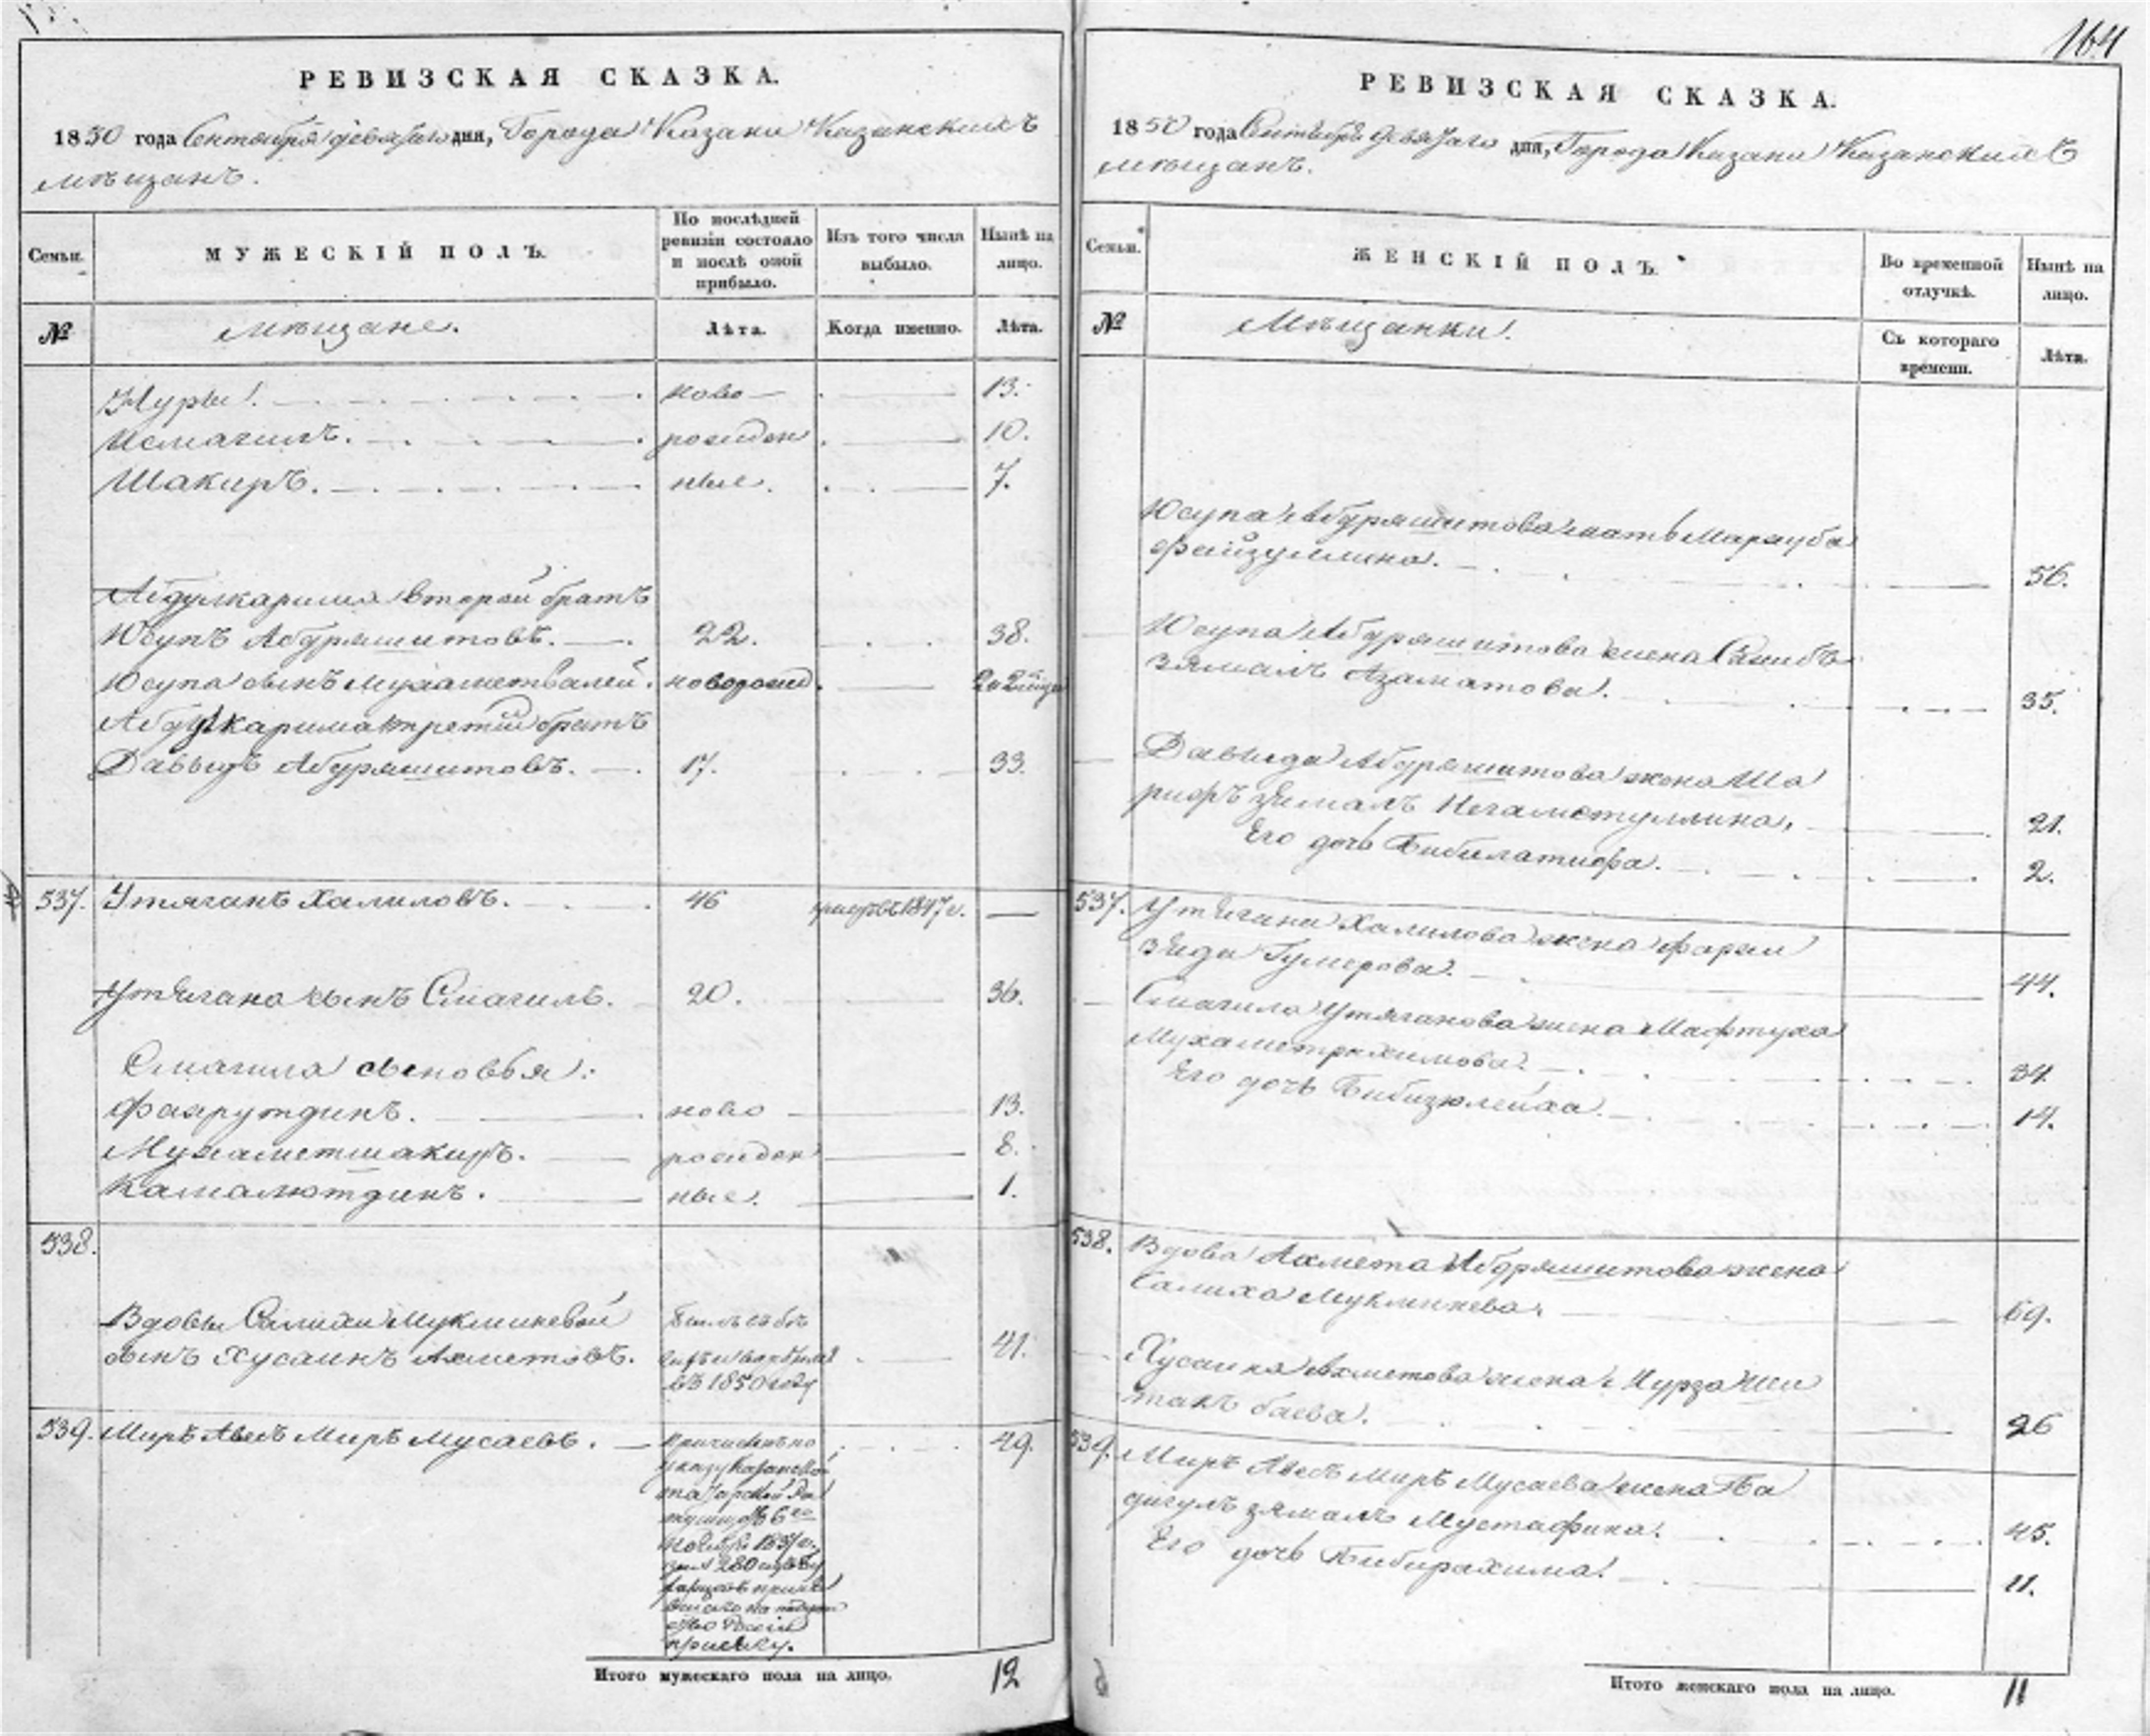 164
РЕВИЗСКАЯ СКАЗКА.
1850 года Сентября девятаго дня, Города Казани Казанскихъ
мѣщанъ.
Семьи.
МУЖЕСКІЙ ПОЛЪ.
По послѣдней
ревизіи состояло
и послѣ оной
прибыло.
Изъ того числа
выбыло.
Нынѣ на
лицо.
№
мѣщане.
Лѣта.
Когда именно.
Лѣта.
Нуры. ново 13.
Исмагилъ. рожден 10.
Шакиръ. ные. 7.
Абдулкарима второй братъ
Юсупъ Абдряшитовъ. 22. 38.
Юсупа сынъ Мухаметвалей. новорожд.
Абдулкарима третій братъ
Давыдъ Абдряшитовъ. 17. 33.
537. Утяганъ Халиловъ. 46 умеръ въ 1847 г. —
Утягана сынъ Смагилъ. 20. 36.
Смагила сыновья:
Фахрутдинъ. ново 13.
Мухаметшакиръ. рожден 8.
Камалютдинъ. ные. 1.
538.
Вдовы Салихи Мукминевой
сынъ Хусаинъ Ахметовъ. 41.
въ 1850 году
539. Миръ Авесъ Миръ Мусаевъ. 49.
Причисленъ по
указу Казанской
Итого мужескаго пола на лицо. 12
РЕВИЗСКАЯ СКАЗКА.
1850 года Сентября девятаго дня, Города Казани Казанскихъ
мѣщанъ.
Семьи.
ЖЕНСКІЙ ПОЛЪ.
Во временной
отлучкѣ.
Нынѣ на
лицо.
№
Мѣщанки.
Съ котораго
времени.
Лѣта.
Юсупа Абдряшитова мать Марауба
Файзуллина. 56.
Юсупа Абдряшитова жена
зямалъ Азаматова. 35.
Давыда Абдряшитова жена Ша
рифъ зямалъ Негаметуллина, 21.
Его дочь Бибилатифа. 2.
537. Утягана Халилова жена Фархи
зяда Гумерова. 44.
Смагила Утяганова жена Мафтуха
Мухаметрахимова. 34.
Его дочь Бибизюлейха. 14.
538. Вдова Ахмета Абдряшитова жена
Салиха Мукминева. 69.
Хусаина Ахметова жена Нурза Ши
танъ баева. 26
539. Миръ Авесъ Миръ Мусаева жена Ба
дигулъ зямалъ Мустафина. 45.
Его дочь Бибирахима. 11.
Итого женскаго пола на лицо. 11